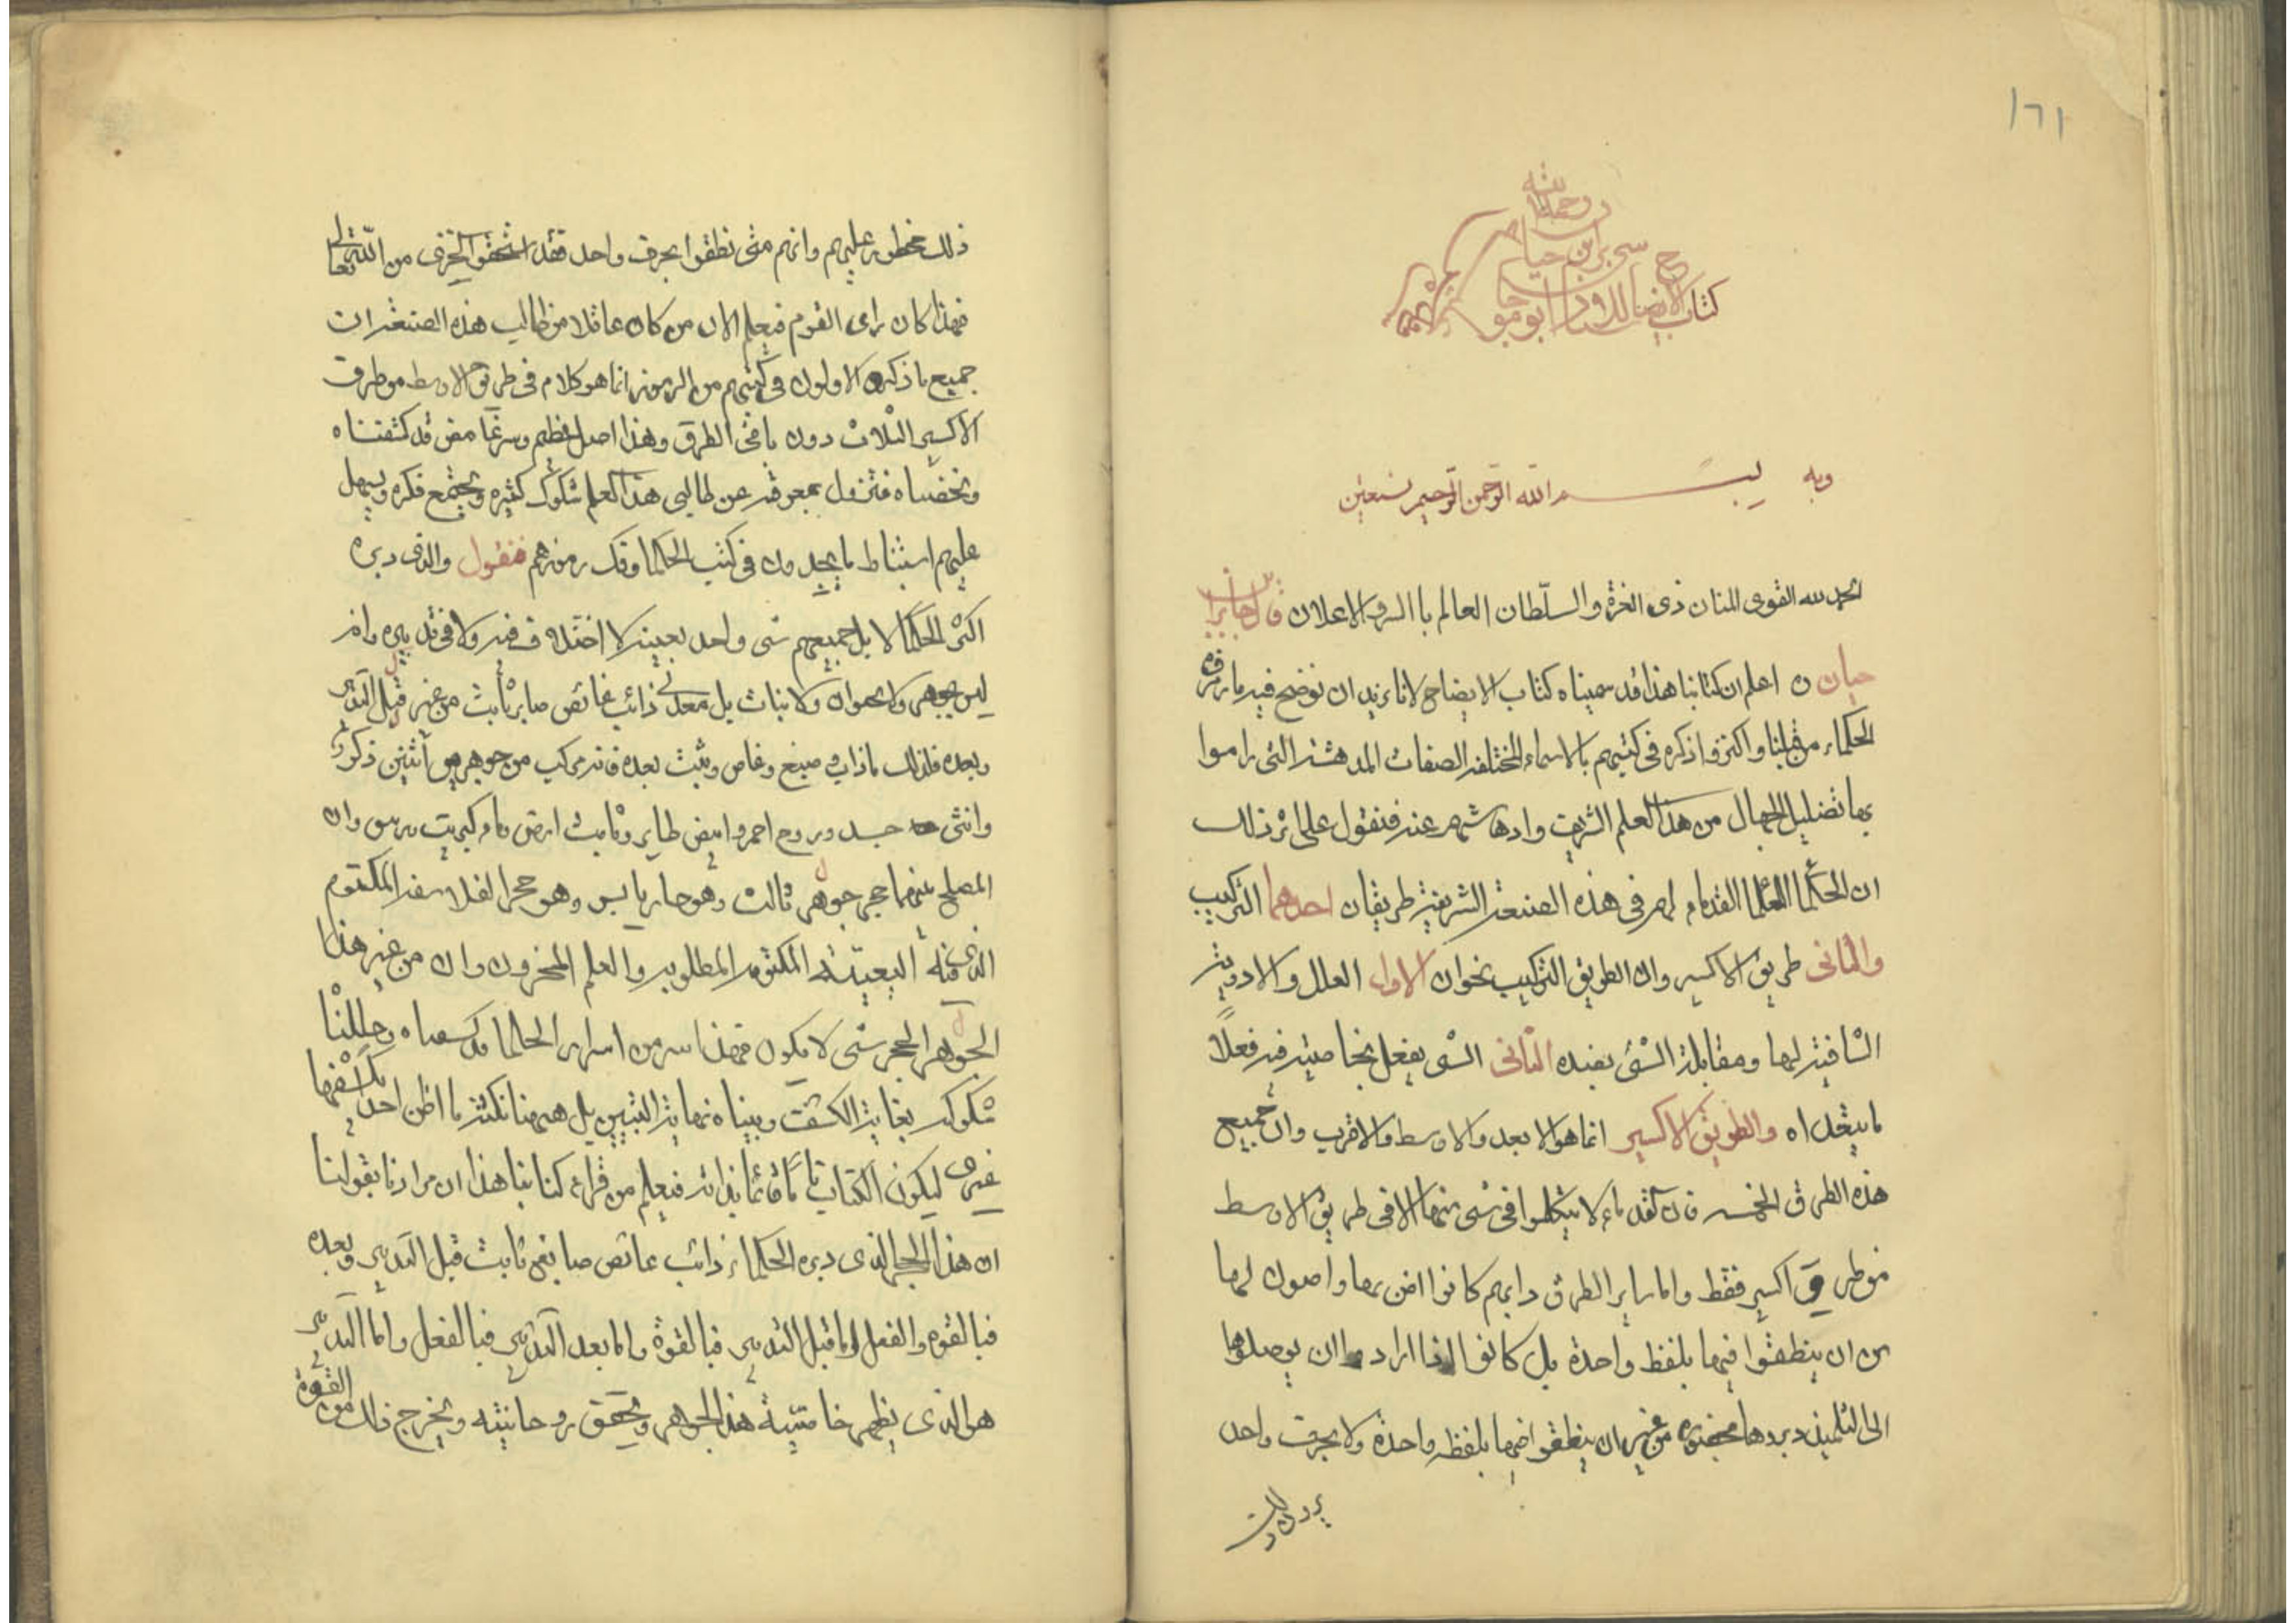 ١٦١
كتاب الايضاح للاستاد ابو موسى جابر ابن حيان
رحمة الله
وبه بسم الله الرحمن الرحيم نستعين
الحمد لله القوى المنان ذى العزة والسلطان العالم باالسر والاعلان قال جابر ابن
حيان اعلم ان كتابنا هذا قد سميناه كتاب الايضاح لانا نريد ان نوضح فيه ما رمزه
الحكماء من قبلنا واكنزوا ذكره فى كتبهم بالاسماء المختلفه الصفات المدهشه التى راموا
بها تضليل الجهال من هذا العلم الشريف وادهاشهم عنه فنقول على اثر ذلك
ان الحكما العلما القدماء لهم فى هذه الصنعة الشريفة طريقان احدهما التركيب
والثانى طريق الاكسير وان الطريق التركيب نحوان الاول العلل والادوية
الشافية لها ومقابلة الشئ بضده الثانى الشى يفعل بخاصيته فيه فعلاً
ما يتعداه والطريق الاكسير انما هو الابعد والاوسط والاقرب وان جميع
هذه الطرق الخمسه فان القدماء لا يتكلموا فى شى منها الا فى طريق الاوسط
من طرق اكسير فقط واما ساير الطرق دايهم كانوا اضن بها واصون لها
من ان ينطقوا فيها بلفظ واحدة بل كانوا اذا ارادوا ان يوصلوها
الى التلميذ دبروها بحضوره من غير ان ينطقوا فيها بلفظه واحدة ولا بحرف واحد
يرون ذلك
ذلك محظور عليهم وانهم متى نطقوا بحرف واحد فقد استحقوا الخزى من الله تعالى
فهذا كان راى القوم فيعلم الان من كان عاقلا من طالب هذه الصنعة ان
جميع ما ذكره الاولون فى كتبهم من الرموز انما هو كلام فى طريق الاوسط من طرق
الاكسير الثلاث دون باقى الطرق وهذا اصل عظيم وسر غامض قد كشفناه
ولخصناه فتزول بمعرفته عن طالبى هذا العلم شكوك كثيره ويجتمع فكره ويسهل
عليهم استنباط ما يجدون فى كتب الحكما وفك رموزهم فنقول والذى دبره
اكثر الحكما لا بل جميعهم شى واحد بعينه لا اختلاف فيه ولا فى تدبيره وانه
ليس بجوهر ولا بحيوان ولا نبات بل معدنى ذائب غائص صابر ثابت من غير قبل التدبير
وبعده فلذلك ما ذاب وصبغ وغاص وثبت بعده فانه مركب من جوهرين اثنين ذكر
وانثى جسد وروح احمر وابيض طاير وثابت ارض وماء كبريت وزيبق وان
المصلح بينهما حجر جوهر ثالث وهو حار يابس وهو حجر الفلاسفه المكتوم
الذى فيه البغيتة المكتومه المطلوبه والعلم المخزون وان من غير هذا
الجوهر الحجر شى لا يكون فهذا سر من اسرار الحكما قد كشفناه وحللنا
شكوكه بغاية الكشف وبيناه نهاية التبيين بل ههنا نكتة ما اظن احد يكشفها
غيرى ليكون الكتاب تاماً قائما بذاته فيعلم من قراء كتابنا هذا ان مرادنا بقولنا
ان هذا الحجر الذى دبره الحكماء ذائب غائص صابغ ثابت قبل التدبير وبعده
فبالقوه والفعل اما قبل التدبير فبالقوة واما بعد التدبير فبالفعل واما التدبير
هو الذى يظهر خاصيّية هذا الجوهر ويحقق روحانيته ويخرج ذلك من القوة